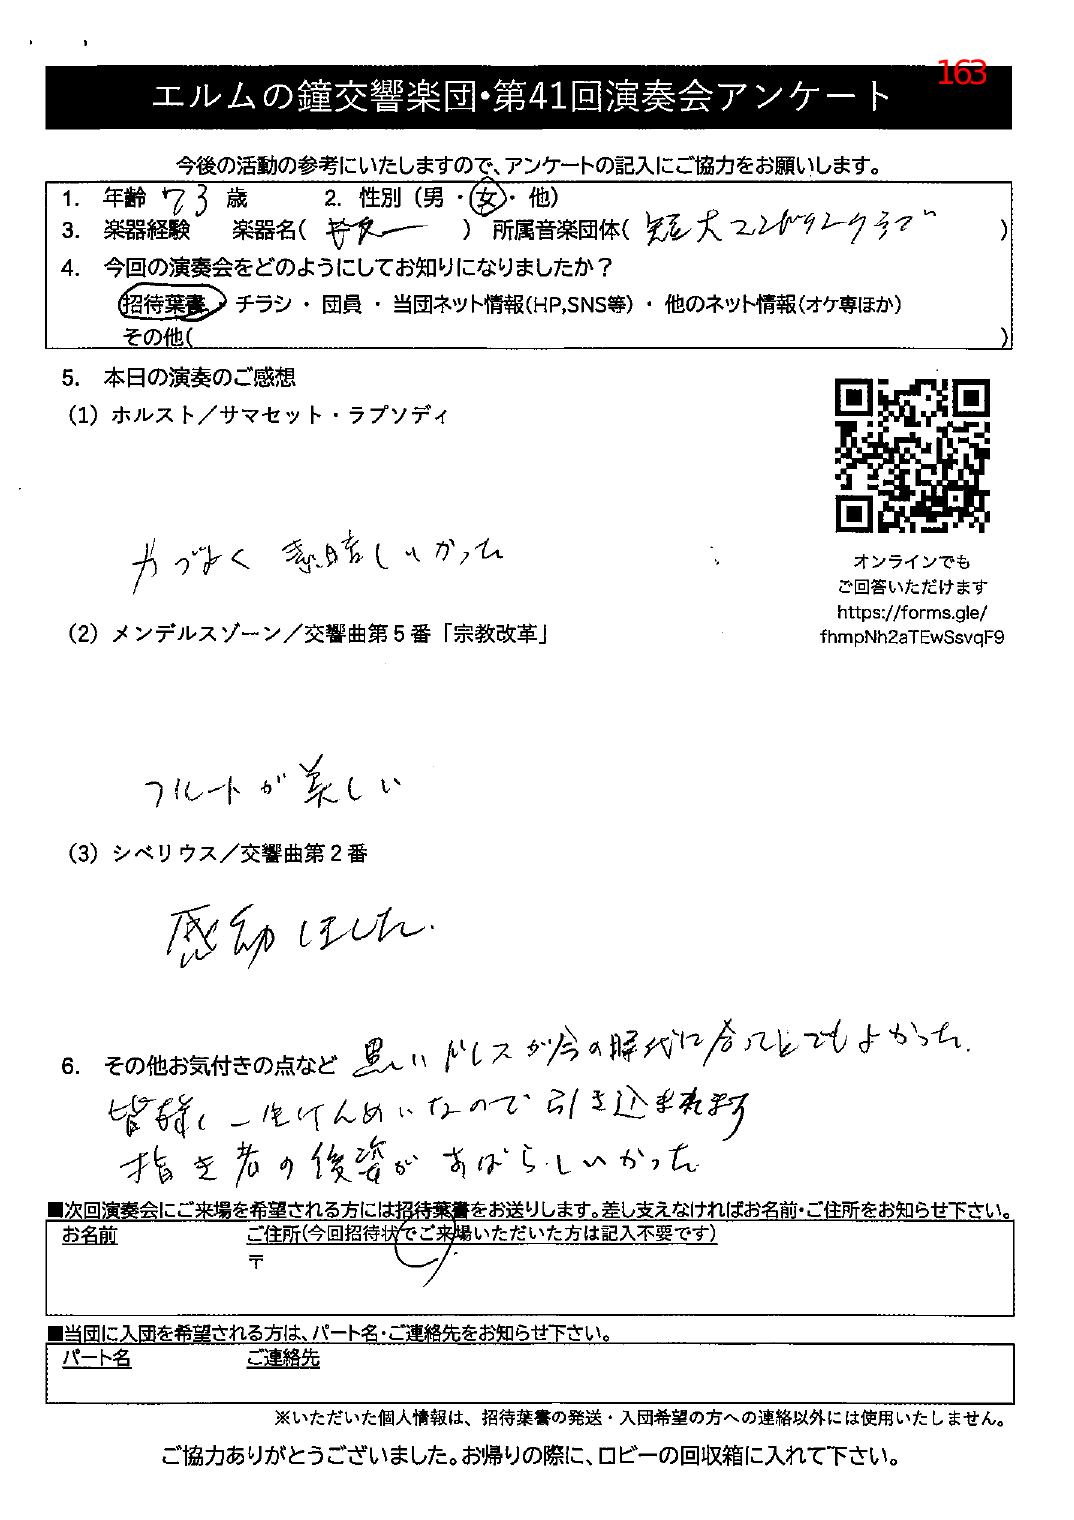 163
エルムの鐘交響楽団・第41回演奏会アンケート
今後の活動の参考にいたしますので、アンケートの記入にご協力をお願いします。
1. 年齢 73 歳 2. 性別（男 ・ 女 ・ 他）
3. 楽器経験 楽器名( ) 所属音楽団体( 短大 まで )
4. 今回の演奏会をどのようにしてお知りになりましたか？
招待葉書 ・ チラシ ・ 団員 ・ 当団ネット情報(HP,SNS等) ・ 他のネット情報(オケ専ほか)
その他( )
5. 本日の演奏のご感想
（1）ホルスト／サマセット・ラプソディ
力づよく 素晴しいかった
オンラインでも
ご回答いただけます
https://forms.gle/
fhmpNh2aTEwSsvqF9
（2）メンデルスゾーン／交響曲第５番「宗教改革」
フルートが美しい
（3）シベリウス／交響曲第２番
感動しました.
6. その他お気付きの点など 黒いドレスが今の時代に合ってとてもよかった.
皆様 一生けんめいなので引き込まれます
指き者の後姿がすばらしいかった
■次回演奏会にご来場を希望される方には招待葉書をお送りします。差し支えなければお名前・ご住所をお知らせ下さい。
お名前 ご住所(今回招待状でご来場いただいた方は記入不要です)
〒
■当団に入団を希望される方は、パート名・ご連絡先をお知らせ下さい。
パート名 ご連絡先
※いただいた個人情報は、招待葉書の発送・入団希望の方への連絡以外には使用いたしません。
ご協力ありがとうございました。お帰りの際に、ロビーの回収箱に入れて下さい。